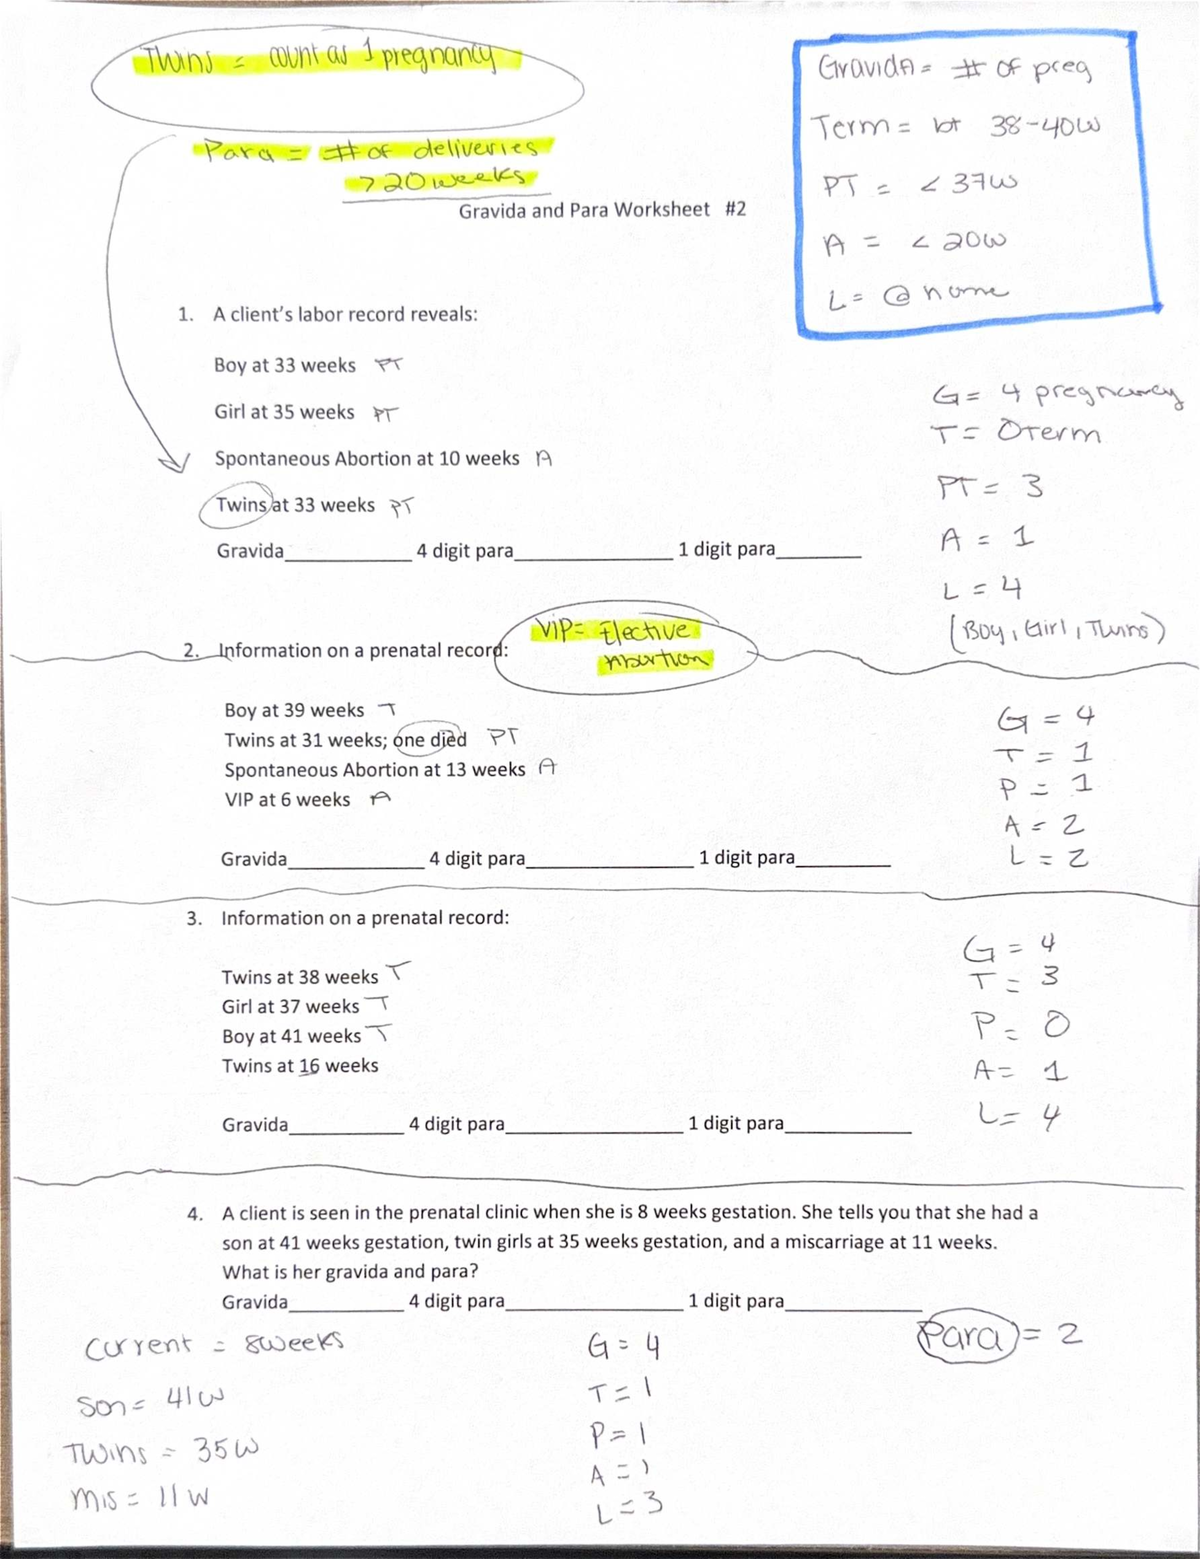 Twins = count as 1 pregnancy
Para = # of deliveries
>20weeks
Gravida = # of preg
Term = bt 38-40W
PT = < 37W
A = < 20W
L = @ home
Gravida and Para Worksheet #2
1. A client's labor record reveals:
Boy at 33 weeks PT
Girl at 35 weeks PT
Spontaneous Abortion at 10 weeks A
Twins at 33 weeks PT
Gravida____________ 4 digit para_______________ 1 digit para________
G = 4 pregnancy
T = 0 Term
PT = 3
A = 1
L = 4
(Boy, Girl, Twins)
VIP = Elective
Abortion
2. Information on a prenatal record:
Boy at 39 weeks T
Twins at 31 weeks; one died PT
Spontaneous Abortion at 13 weeks A
VIP at 6 weeks A
Gravida_____________ 4 digit para________________ 1 digit para_________
G = 4
T = 1
P = 1
A = 2
L = 2
3. Information on a prenatal record:
Twins at 38 weeks T
Girl at 37 weeks T
Boy at 41 weeks T
Twins at 16 weeks
Gravida___________ 4 digit para_________________ 1 digit para____________
G = 4
T = 3
P = 0
A = 1
L = 4
4. A client is seen in the prenatal clinic when she is 8 weeks gestation. She tells you that she had a
son at 41 weeks gestation, twin girls at 35 weeks gestation, and a miscarriage at 11 weeks.
What is her gravida and para?
Gravida___________ 4 digit para_________________ 1 digit para_____________
Current = 8weeks
Son = 41W
Twins = 35W
Mis = 11W
G = 4
T = 1
P = 1
A = 1
L = 3
Para = 2